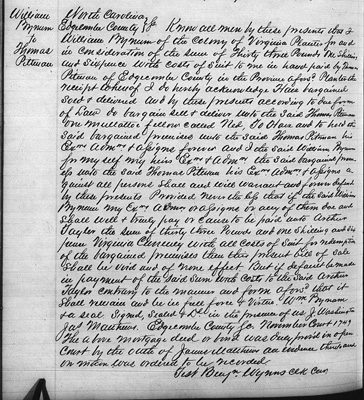 William
Bynum
to
Thomas
Pitman
North Carolina
Edgecombe County Ss Know all men by these presents that I
William Bynum of the Colony of Virginia Planter for and
in consideration of the sum of Thirty three Pounds One Shilling
and Sixpence with costs of suit to me in hand paid by Thomas
Pitman of Edgecombe County in the Province aforsd Planter the
receipt whereof I do hereby acknowledge Have bargained
Sold & delivered and by these presents according to due form
of Law do bargain sell & deliver unto the said Thomas Pitman
one mullatter fellow called Ned, To Have and to hold sd
said bargained premises unto the said Thomas Pitman his
Exrs Admrs & assigns forever and I the said William Bynum
for my self my heirs Exrs & Admrs the said bargained prem
ises unto the said Thomas Pitman his Exrs Admrs & assigns a
gainst all persons shall and will warrant and forever defend
by these presents Provided nevertheless that if the said William
Bynum my Exrs Admrs or assigns or any of them do and
shall well & truly pay or cause to be paid unto Arthur
Taylor the sum of thirty three Pounds and one Shilling and six
pence Virginia Currency with all costs of suit for redemption
of the bargained premises then this present bill of sale
shall be void and of none effect But if default be made
in payment of the said sum and costs to the said Arthur
Taylor contrary to the manner and form aforsd that it
shall remain and be in full force & Virtue. Wm Bynum
& a seal Signed, Sealed & Dd in the presence of us J. Washington
Jas Matthews. Edgecombe County Sc November Court 1749
The above mortgage deed or bond was duly proved in open
Court by the oath of James Matthews an evidence thereto and
on motion was ordered to be recorded.
Test Benjn Wynns Clk Cur